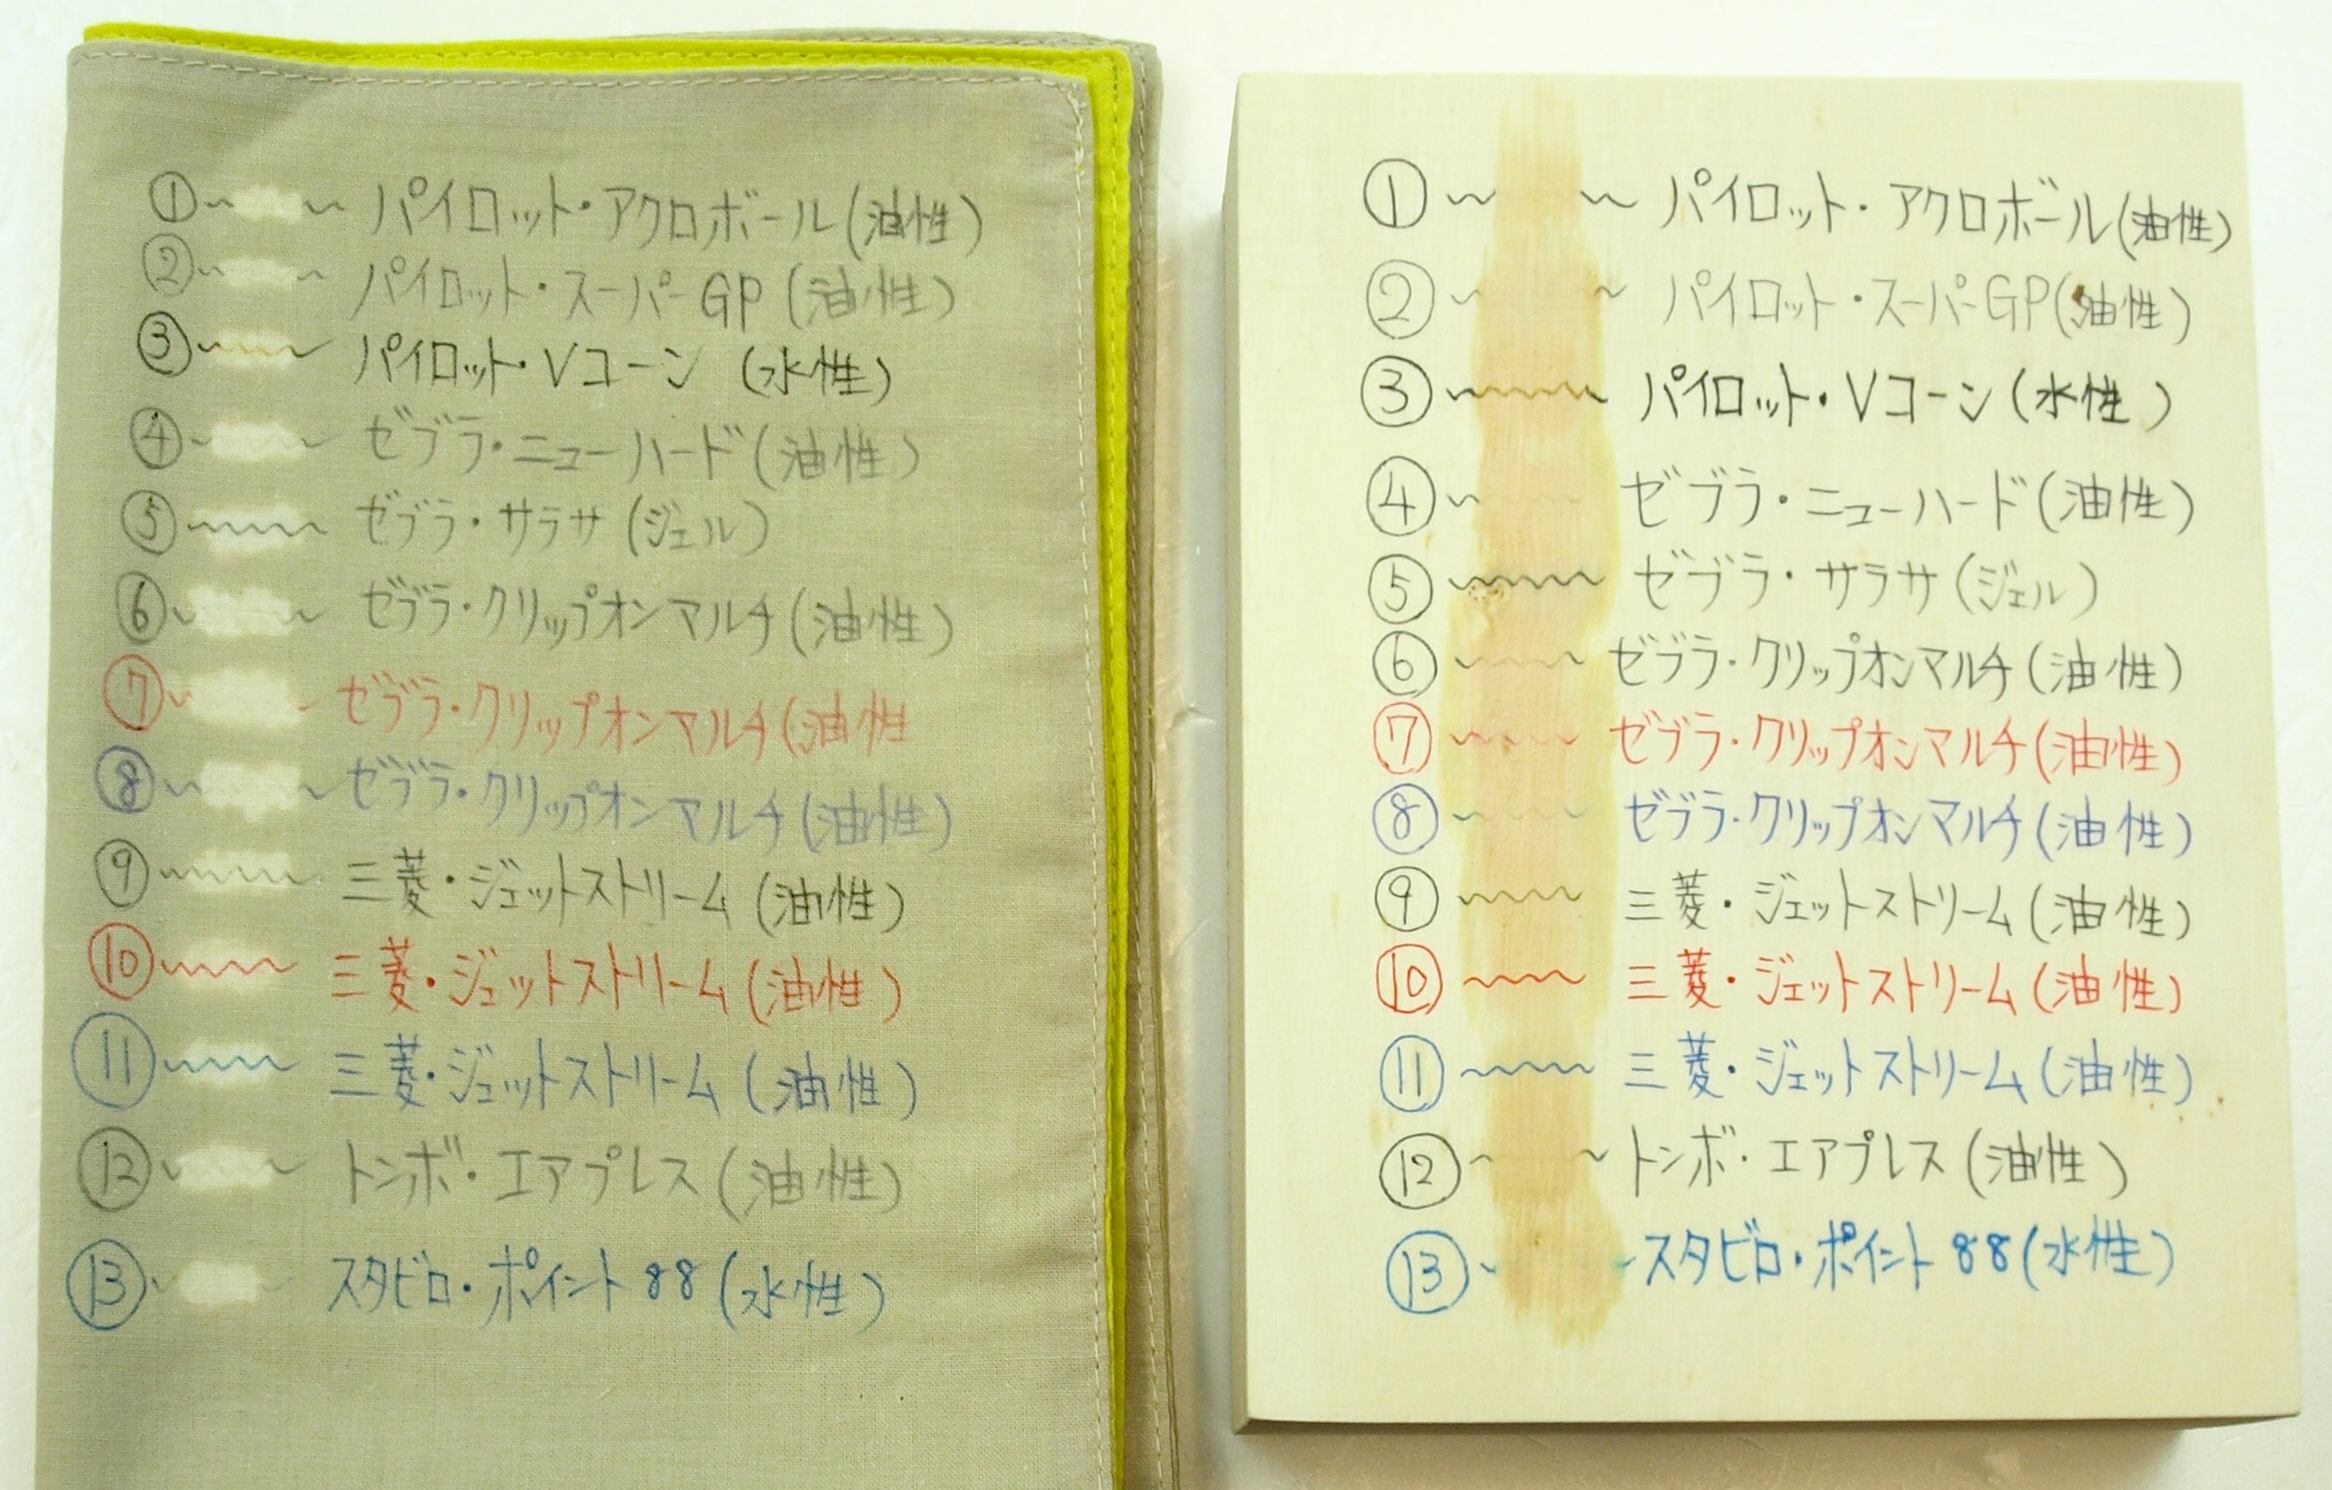 ① パイロット・アクロボール(油性)
② パイロット・スーパーGP(油性)
③ パイロット・Vコーン (水性)
④ ゼブラ・ニューハード(油性)
⑤ ゼブラ・サラサ(ジェル)
⑥ ゼブラ・クリップオンマルチ(油性)
⑦ ゼブラ・クリップオンマルチ(油性
⑧ ゼブラ・クリップオンマルチ(油性)
⑨ 三菱・ジェットストリーム(油性)
⑩ 三菱・ジェットストリーム(油性)
⑪ 三菱・ジェットストリーム(油性)
⑫ トンボ・エアプレス(油性)
⑬ スタビロ・ポイント88(水性)
① パイロット・アクロボール(油性)
② パイロット・スーパーGP(油性)
③ パイロット・Vコーン(水性)
④ ゼブラ・ニューハード(油性)
⑤ ゼブラ・サラサ(ジェル)
⑥ ゼブラ・クリップオンマルチ(油性)
⑦ ゼブラ・クリップオンマルチ(油性)
⑧ ゼブラ・クリップオンマルチ(油性)
⑨ 三菱・ジェットストリーム(油性)
⑩ 三菱・ジェットストリーム(油性)
⑪ 三菱・ジェットストリーム(油性)
⑫ トンボ・エアプレス(油性)
⑬ スタビロ・ポイント88(水性)